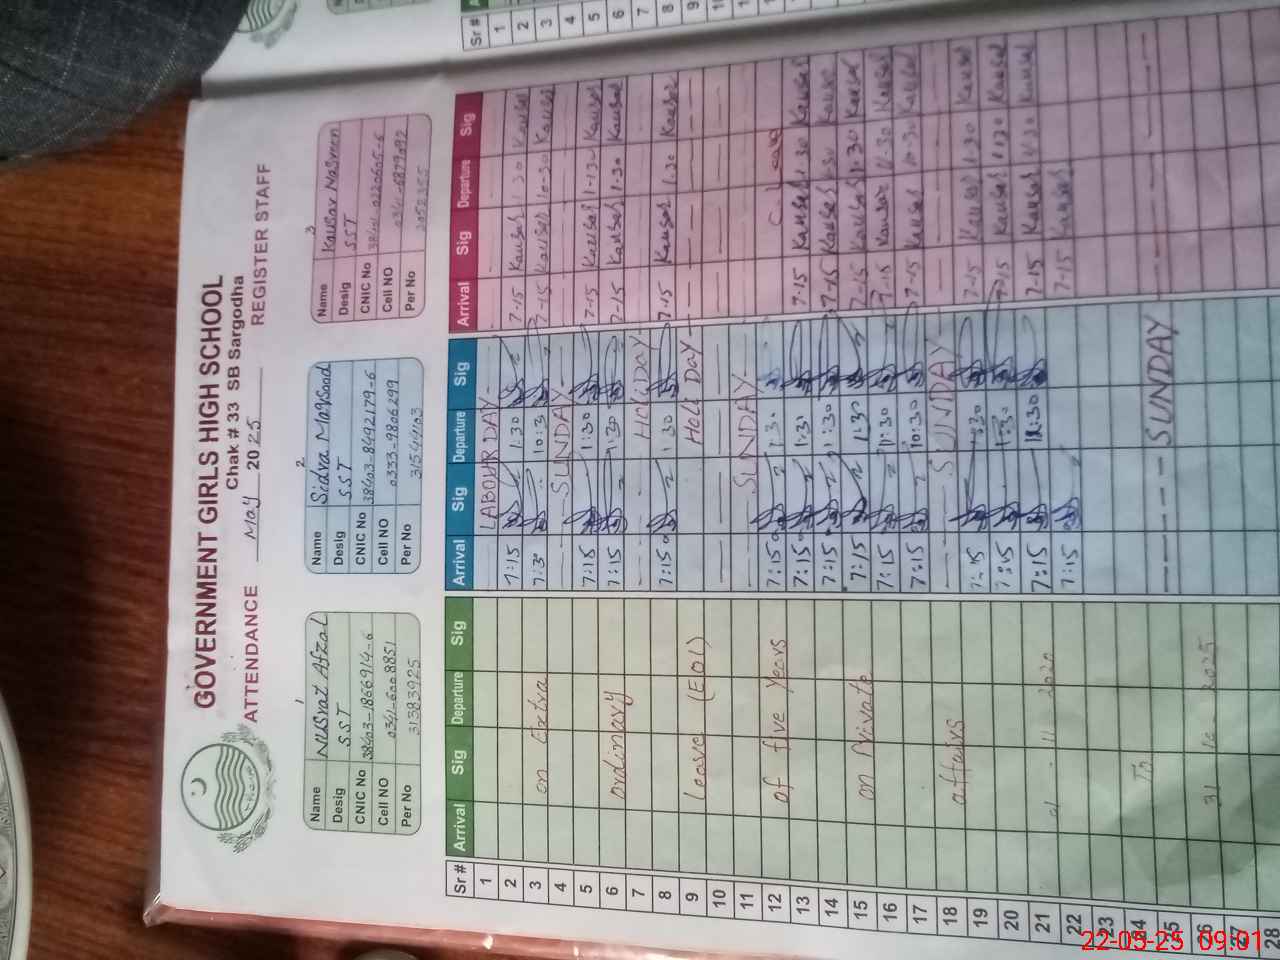 GOVERNMENT GIRLS HIGH SCHOOL
Chak # 33 SB Sargodha
ATTENDANCE May 2025 REGISTER STAFF
1
Name Nusrat Afzal
Desig SST
CNIC No 38403-1866914-6
Cell NO 0341-6008851
Per No 31383925
2
Name Sidra Maqsood
Desig SST
CNIC No 38403-8492179-6
Cell NO 0333-9806299
Per No 31544103
3
Name Kausar Nasreen
Desig SST
CNIC No
Cell NO
Per No
Sr # Arrival Sig Departure Sig Arrival Sig Departure Sig Arrival Sig Departure Sig
1 LABOUR DAY
2 7:15 1:30 7-15 Kausar 1-30 Kausar
3 on Extra 7:30 10:30 7-15 Kausar 10-30 Kausar
4 SUNDAY
5 7:15 1:30 7-15 Kausar 1-30 Kausar
6 ordinary 7:15 1:30 7-15 Kausar 1-30 Kausar
7 HOLIDAY
8 7:15 1:30 7-15 Kausar 1.30 Kausar
9 Leave (EOL) HOLIDAY
10
11 SUNDAY
12 of five years 7:15 1:30 C. Leave
13 7:15 1:30 7-15 Kausar 1.30 Kausar
14 7:15 1:30 7-15 Kausar 1:30 Kausar
15 on Private 7:15 1:30 7-15 Kausar 1.30 Kausar
16 7:15 7-15 Kausar Kausar
17 7:15 10:30 7-15 Kausar 10.30 Kausar
18 affairs SUNDAY
19 7:15 1:30 7-15 Kausar 1.30 Kausar
20 7:15 1:30 7-15 Kausar 1.30 Kausar
21 11 2020 7:15 12:30 7-15 Kausar Kausar
22 7:15 7-15 Kausar
23
24 To
25 SUNDAY
26 31 2025
27
28
Sr #
1
2
3
4
5
6
7
8
9
22-05-25 09:01